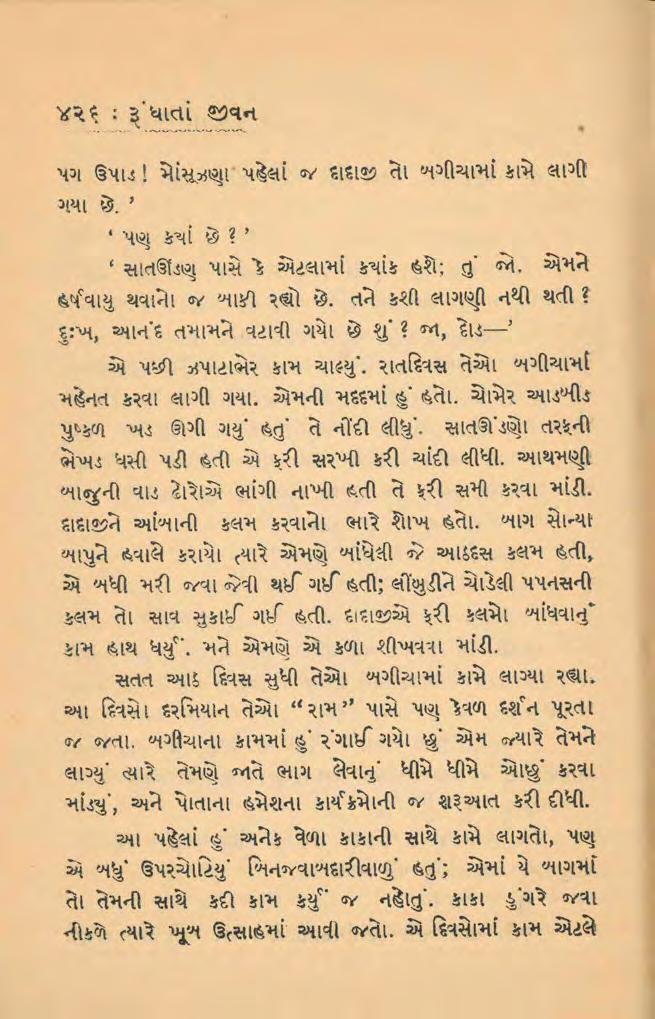 ૪૨૬ : રૂંધાતાં જીવન
પગ ઉપાડ! મોંસૂઝણા પહેલાં જ દાદાજી તો બગીચામાં કામે લાગી
ગયા છે. ’
‘ પણ ક્યાં છે ? ’
‘ સાતઊંડણ પાસે કે એટલામાં ક્યાંક હશે; તું જો. એમને
હર્ષવાયુ થવાનો જ બાકી રહ્યો છે. તને કશી લાગણી નથી થતી ?
દુઃખ, આનંદ તમામને વટાવી ગયો છે શું ? જા, દોડ—’
એ પછી ઝપાટાભેર કામ ચાલ્યું. રાતદિવસ તેઓ બગીચામાં
મહેનત કરવા લાગી ગયા. એમની મદદમાં હું હતો. ચોમેર આડબીડ
પુષ્કળ ખડ ઊગી ગયું હતું તે નીંદી લીધું. સાતઊંડણો તરફની
ભેખડ ધસી પડી હતી એ ફરી સરખી કરી ચાંદી લીધી. આથમણી
બાજુની વાડ ઢોરોએ ભાંગી નાખી હતી તે ફરી સમી કરવા માંડી.
દાદાજીને આંબાની કલમ કરવાનો ભારે શોખ હતો. બાગ સોન્યા
બાપુને હવાલે કરાયો ત્યારે એમણે બાંધેલી જે આઠદસ કલમ હતી,
એ બધી મરી જવા જેવી થઈ ગઈ હતી; લીંબુડીને ચોડેલી પપનસની
કલમ તો સાવ સુકાઈ ગઈ હતી. દાદાજીએ ફરી કલમો બાંધવાનું
કામ હાથ ધર્યું. મને એમણે એ કળા શીખવવા માંડી.
સતત આઠ દિવસ સુધી તેઓ બગીચામાં કામે લાગ્યા રહ્યા.
આ દિવસો દરમિયાન તેઓ “રામ” પાસે પણ કેવળ દર્શન પૂરતા
જ જતા. બગીચાના કામમાં હું રંગાઈ ગયો છું એમ જ્યારે તેમને
લાગ્યું ત્યારે તેમણે જાતે ભાગ લેવાનું ધીમે ધીમે ઓછું કરવા
માંડ્યું, અને પોતાના હમેશના કાર્યક્રમોની જ શરૂઆત કરી દીધી.
આ પહેલાં હું અનેક વેળા કાકાની સાથે કામે લાગતો, પણ
એ બધું ઉપરચોટિયું બિનજવાબદારીવાળું હતું; એમાં યે બાગમાં
તો તેમની સાથે કદી કામ કર્યું જ નહોતું. કાકા ડુંગરે જવા
નીકળે ત્યારે ખૂબ ઉત્સાહમાં આવી જતો. એ દિવસોમાં કામ એટલે